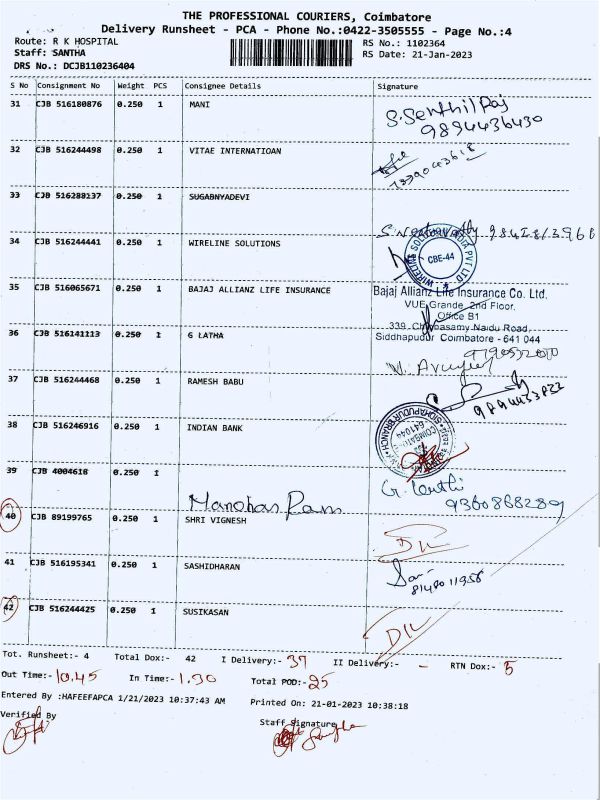 THE PROFESSIONAL COURIERS, Coimbatore
Delivery Runsheet - PCA - Phone No.:0422-3505555 - Page No.:4
Route: R K HOSPITAL RS No.: 1102364
Staff: SANTHA RS Date: 21-Jan-2023
DRS No.: DCJB110236404
S No Consignment No Weight PCS Consignee Details Signature
31 CJB 516180876 0.250 1 MANI S. Senthil Raj
9894436430
32 CJB 516244498 0.250 1 VITAE INTERNATIOAN
7339043618
33 CJB 516288137 0.250 1 SUGABNYADEVI
34 CJB 516244441 0.250 1 WIRELINE SOLUTIONS CBE-44
35 CJB 516065671 0.250 1 BAJAJ ALLIANZ LIFE INSURANCE Bajaj Allianz Life Insurance Co. Ltd.
VUE Grande, 2nd Floor,
Office B1
339, Chinnasamy Naidu Road,
Siddhapudur Coimbatore - 641 044
36 CJB 516141113 0.250 1 G LATHA
37 CJB 516244468 0.250 1 RAMESH BABU
38 CJB 516246916 0.250 1 INDIAN BANK SIDHAPUDUR BRANCH 641044
39 CJB 4004618 0.250 1 Manohar Ram
9360868289
40 CJB 89199765 0.250 1 SHRI VIGNESH DIL
41 CJB 516195341 0.250 1 SASHIDHARAN
42 CJB 516244425 0.250 1 SUSIKASAN DIL
Tot. Runsheet:- 4 Total Dox:- 42 I Delivery:- 37 II Delivery:- - RTN Dox:- 5
Out Time:- 10.45 In Time:- 1.30 Total POD:- 25
Entered By :HAFEEFAPCA 1/21/2023 10:37:43 AM Printed On: 21-01-2023 10:38:18
Verified By Staff Signature